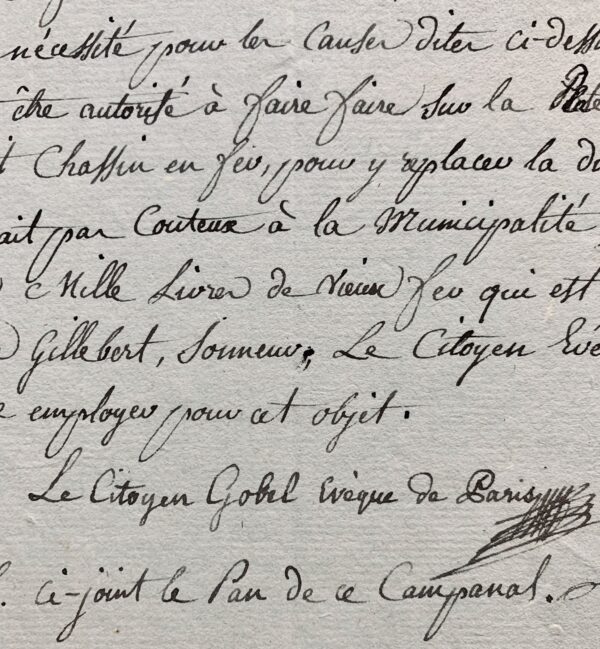 nécessité pour les Causes dites ci-dess
être autorisé à faire faire sur la
t Chassin en fer, pour y replacer la d
ait par Couteux à la Municipalité
Mille Livres de vieux fer qui est
Gillebert, Sonneur; Le Citoyen Evé
e employer pour cet objet.
Le Citoyen Gobel Evèque de Paris
ci-joint le Pan de ce Campanal.